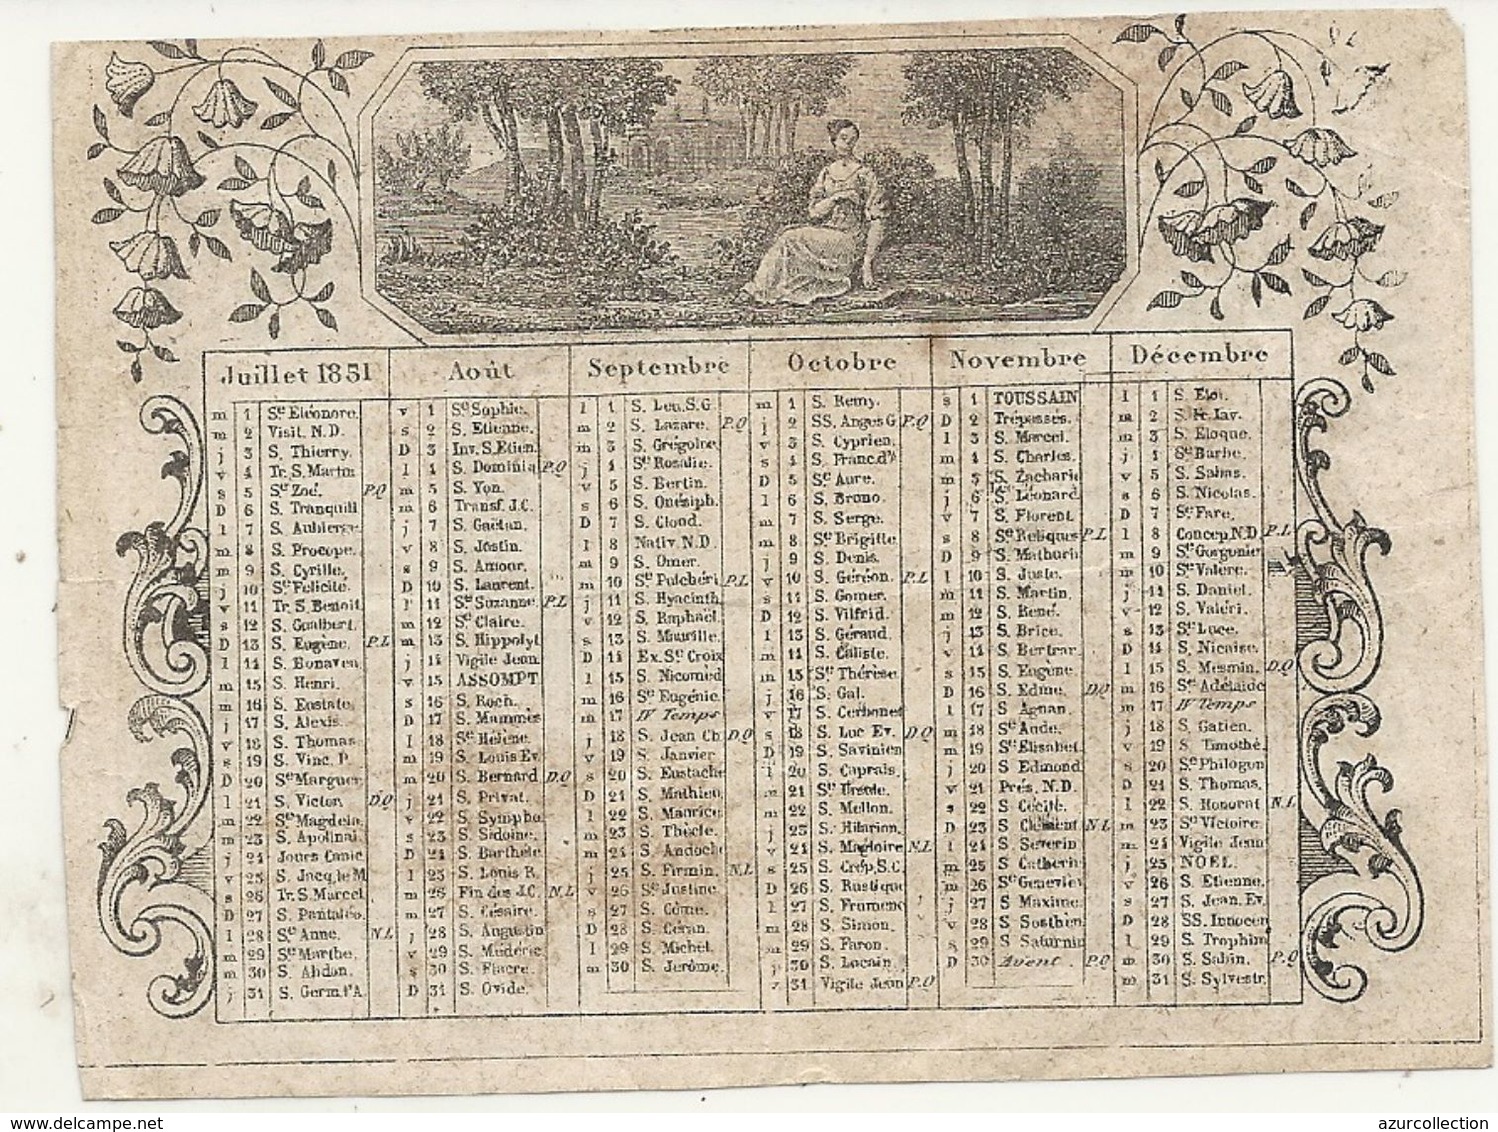 Juillet 1851
m 1 Ste Eléonore.
m 2 Visit. N.D.
j 3 S. Thierry.
v 4 Tr. S. Martin
s 5 Ste Zoé. P.Q
D 6 S. Tranquill
l 7 S. Aubierge.
m 8 S. Procope.
m 9 S. Cyrille.
j 10 Ste Félicité.
v 11 Tr. S. Benoit.
s 12 S. Gualbert.
D 13 S. Eugène. P.L
l 14 S. Bonaven.
m 15 S. Henri.
m 16 S. Eustate.
j 17 S. Alexis.
v 18 S. Thomas.
s 19 S. Vinc. P.
D 20 Ste Marguer.
l 21 S. Victor. D.Q
m 22 Ste Magdeln.
m 23 S. Apolinai.
j 24 Jours Canic.
v 25 S. Jacq. le M
s 26 Tr. S. Marcel
D 27 S. Pantaléo.
l 28 Ste Anne. N.L
m 29 Ste Marthe.
m 30 S. Abdon.
j 31 S. Germ. l'A.
Août
v 1 Ste Sophie.
s 2 S. Etienne.
D 3 Inv. S. Etien.
l 4 S. Dominiq P.Q
m 5 S. Yon.
m 6 Transf. J.C.
j 7 S. Gaëtan.
v 8 S. Justin.
s 9 S. Amour.
D 10 S. Laurent.
l 11 Ste Suzanne. P.L
m 12 Ste Claire.
m 13 S. Hippolyt
j 14 Vigile Jeun.
v 15 ASSOMPT.
s 16 S. Roch.
D 17 S. Mammès
l 18 Ste Hélène.
m 19 S. Louis Ev.
m 20 S. Bernard D.Q
j 21 S. Privat.
v 22 S. Sympho.
s 23 S. Sidoine.
D 24 S. Barthéle.
l 25 S. Louis R.
m 26 Fin des J.C. N.L
m 27 S. Césaire.
j 28 S. Augustin
v 29 S. Médéric.
s 30 S. Fiacre.
D 31 S. Ovide.
Septembre
l 1 S. Leu. S.G
m 2 S. Lazare. P.Q
m 3 S. Grégoire.
j 4 Ste Rosalie.
v 5 S. Bertin.
s 6 S. Onésiph.
D 7 S. Cloud.
l 8 Nativ. N.D.
m 9 S. Omer.
m 10 Ste Pulchéri P.L
j 11 S. Hyacinth.
v 12 S. Raphaël.
s 13 S. Maurille.
D 14 Ex. Ste Croix
l 15 S. Nicomèd
m 16 Ste Eugénie.
m 17 IV Temps
j 18 S. Jean Ch D.Q
v 19 S. Janvier.
s 20 S. Eustache
D 21 S. Mathieu.
l 22 S. Maurice.
m 23 S. Thècle.
m 24 S. Andoche
j 25 S. Firmin. N.L
v 26 Ste Justine.
s 27 S. Côme.
D 28 S. Céran.
l 29 S. Michel.
m 30 S. Jerôme.
Octobre
m 1 S. Remy.
j 2 SS. Anges G P.Q
v 3 S. Cyprien.
s 4 S. Franc. d'A
D 5 Ste Aure.
l 6 S. Bruno.
m 7 S. Serge.
m 8 Ste Brigitte
j 9 S. Denis.
v 10 S. Géréon. P.L
s 11 S. Gomer.
D 12 S. Vilfrid.
l 13 S. Géraud.
m 14 S. Caliste.
m 15 Ste Thérèse.
j 16 S. Gal.
v 17 S. Cerbonet
s 18 S. Luc Ev. D.Q
D 19 S. Savinien
l 20 S. Caprais.
m 21 Ste Ursule.
m 22 S. Mellon.
j 23 S. Hilarion.
v 24 S. Magloire N.L
s 25 S. Crép. S.C.
D 26 S. Rustique
l 27 S. Frumenc
m 28 S. Simon.
m 29 S. Faron.
j 30 S. Lucain.
v 31 Vigile Jeun P.Q
Novembre
s 1 TOUSSAIN
D 2 Trépassés.
l 3 S. Marcel.
m 4 S. Charles.
m 5 S. Zacharie
j 6 S. Léonard
v 7 S. Florent
s 8 Stes Reliques P.L
D 9 S. Mathurin
l 10 S. Juste.
m 11 S. Martin.
m 12 S. René.
j 13 S. Brice.
v 14 S. Bertrar.
s 15 S. Eugène.
D 16 S. Edme. D.Q
l 17 S. Agnan.
m 18 Ste Aude.
m 19 Ste Elisabet.
j 20 S. Edmond
v 21 Prés. N.D.
s 22 S Cécile.
D 23 S Clément N.L
l 24 S. Severin
m 25 S Catherin
m 26 Ste Geneviev
j 27 S Maxime.
v 28 S Sosthen.
s 29 S Saturnin
D 30 Avent. P.Q
Décembre
l 1 S. Eloi.
m 2 S. Fr. Xav.
m 3 S. Eloque.
j 4 Ste Barbe.
v 5 S. Sabas.
s 6 S. Nicolas.
D 7 Ste Fare.
l 8 Concep. N.D. P.L
m 9 Ste Gorgonie
m 10 Ste Valere.
j 11 S. Daniel.
v 12 S. Valéri.
s 13 Ste Luce.
D 14 S. Nicaise.
l 15 S. Mesmin. D.Q
m 16 Ste Adélaïde
m 17 IV Temps
j 18 S. Gatien.
v 19 S. Timothé.
s 20 Ste Philogon
D 21 S. Thomas.
l 22 S. Honorat N.L
m 23 Ste Victoire.
m 24 Vigile Jeun
j 25 NOEL.
v 26 S. Etienne.
s 27 S. Jean. Ev.
D 28 SS. Innocen
l 29 S. Trophim
m 30 S. Sabin. P.Q
m 31 S. Sylvestr.
www.delcampe.net
azurcollection